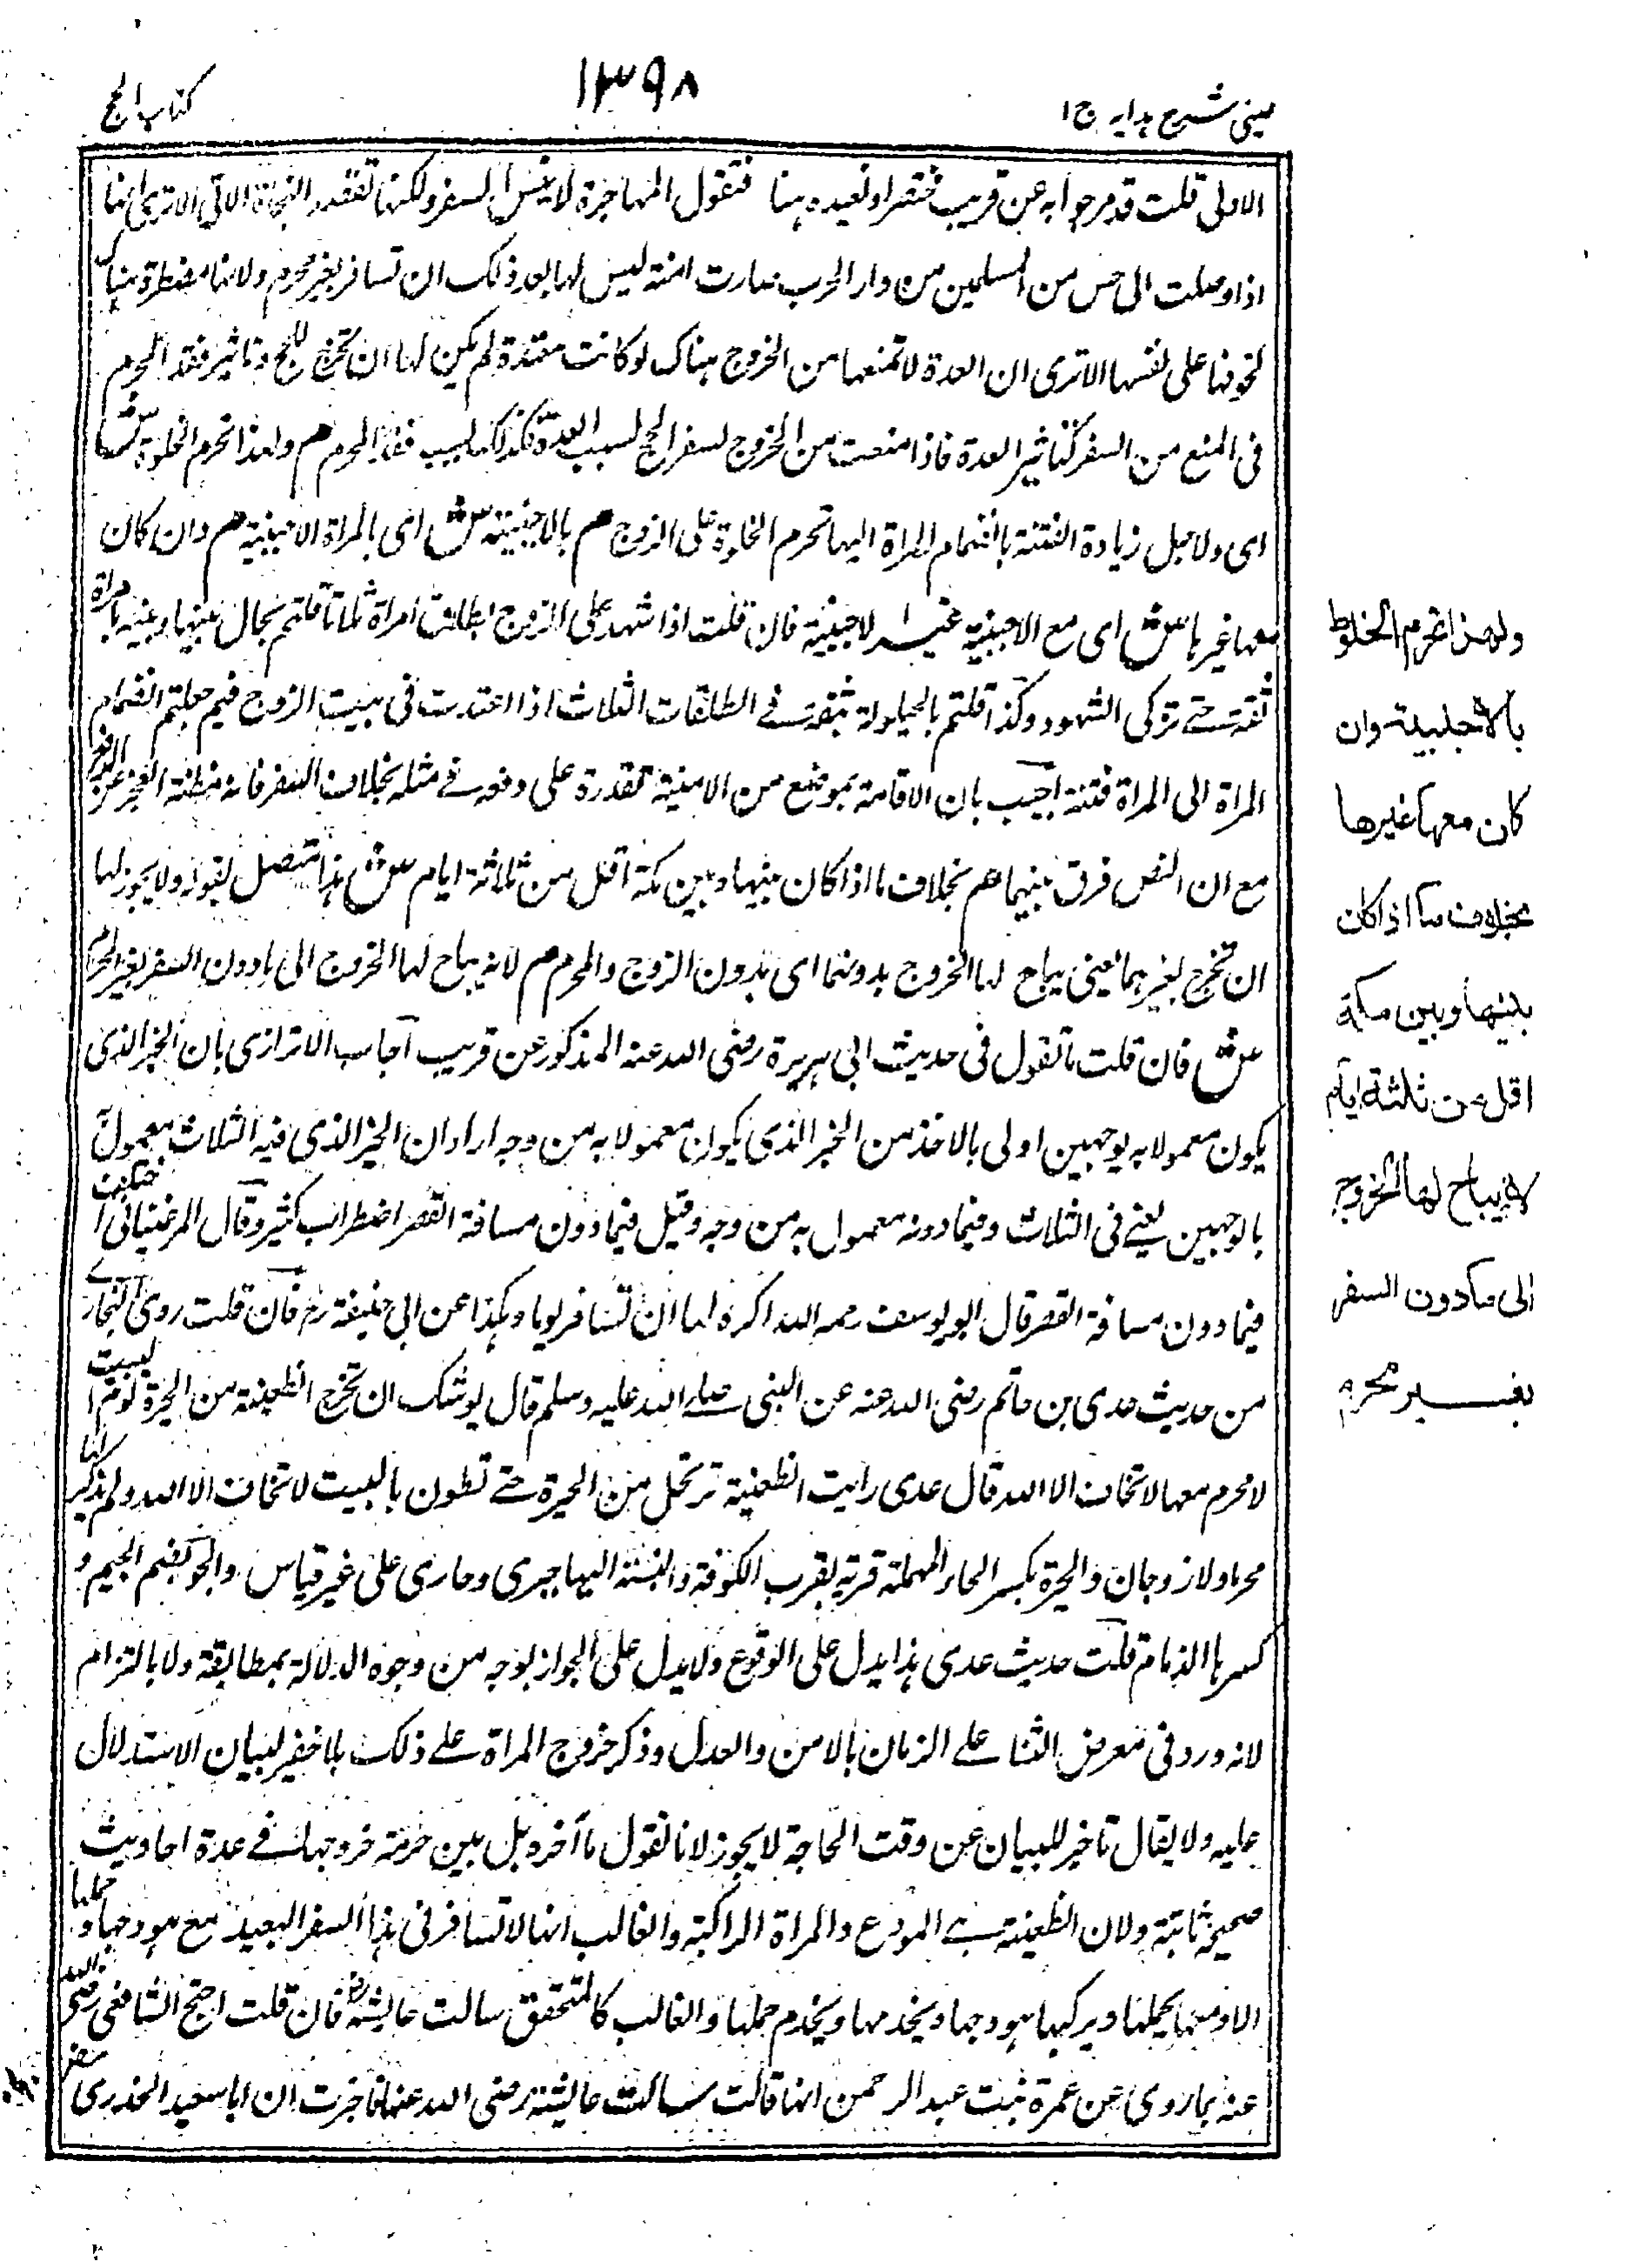 عینی شرح ہدایہ ج ۱
۱۳۹۸
کتاب الحج
الاولی قلت قد مر جوابہ عن قریب مختصرا و نعیدہ ہنا فنقول المہاجرة لا تنشئ السفر ولکنہا تقصد النجاة الا تری انہا
اذا وصلت الی حبس من المسلمین من دار الحرب صارت امنة لیس لہا بعد ذلک ان تسافر بغیر محرم ولانہا مضطرة ہناک
لخوفہا علی نفسہا الا تری ان العدة لا تمنعہا من الخروج ہناک لو کانت معتدة لم یکن لہا ان تخرج للحج وتاثیر فقد المحرم
فی المنع من السفر کتاثیر العدة فاذا منعت من الخروج لسفر الحج لسبب العدة فکذلک لسبب فقد المحرم م ولہذا تحرم الخلوة ش
ای ولاجل زیادة الفتنة بانضمام المراة الیہا تحرم الخلوة علی الزوج م بالاجنبیة ش ای بالمراة الاجنبیة م وان کان
معہا غیرہا ش ای مع الاجنبیة غیر الاجنبیة فان قلت اذا شہد علی الزوج بطلاق امراة ثلاثا قلتم یحال بینہا وبینہ بامراة
ثقة حتے تزکی الشہود وکذا قلتم بالحیلولة بثقة فے الطلقات الثلاث اذا اعتدت فی بیت الزوج فیم جعلتم انضمام
المراة الی المراة فتنة اجیب بان الاقامة بموضع من الامنیة لقدرة علی دفعہ فے مثلہ بخلاف السفر فانہ مظنة العجز عن الدفع
مع ان النص فرق بینہما م بخلاف ما اذا کان بینہا وبین مکة اقل من ثلاثة ایام ش ہذا متصل لقولہ ولا یجوز لہا
ان تخرج بغیرہما یعنی یباح لہا الخروج بدونہما ای بدون الزوج والمحرم م لانہ یباح لہا الخروج الی ما دون السفر بغیر محرم
ش فان قلت ما تقول فی حدیث ابی ہریرة رضی اللہ عنہ المذکور عن قریب اجاب الاترازی بان الخبر الذی
یکون معمولا بہ بوجہین اولی بالاخذ من الخبر الذی یکون معمولا بہ من وجہ اراد ان الخبر الذی فیہ الثلاث معمول
بالوجہین یعنے فی الثلاث وفیما دونہ معمول بہ من وجہ وقیل فیما دون مسافة القصر اضطراب کثیر وقال المرغینانی اختلفت
فیما دون مسافة القصر قال ابو یوسف رحمہ اللہ اکرہ لہا ان تسافر یوما وہکذا عن ابی حنیفة رح فان قلت روی البخاری
من حدیث عدی بن حاتم رضی اللہ عنہ عن النبی صلے اللہ علیہ وسلم قال یوشک ان تخرج الظعینة من الحیرة تؤم البیت
لا محرم معہا لا تخاف الا اللہ قال عدی رایت الظعینة ترتحل من الحیرة حتے تطوف بالبیت لا تخاف الا اللہ ولم یذکر لہا
محرما ولا زوجان والحیرة بکسر الحاء المہملة قریة بقرب الکوفة والنسبة الیہا حیری وحاری علی غیر قیاس والجو بضم الجیم و
کسرہا الذمام قلت حدیث عدی ہذا یدل علی الوقوع ولا یدل علی الجواز بوجہ من وجوہ الدلالة بمطابقة ولا بالتزام
لانہ ورد فی معرض الثنا علے الزمان بالامن والعدل وذکر خروج المراة علے ذلک بلا خفیر لبیان الاستدلال
علیہ ولا یقال تاخیر للبیان عن وقت الحاجة لا یجوز لانا نقول ما اخرہ بل بین حرمة خروجہا فے عدة احادیث
صحیحة ثابتة ولان الظعینة ہے الہودج والمراة الراکبة والغالب انہا لا تسافر فی ہذا السفر البعید مع ہودجہا وحملہا
الا ومعہا یحملہا ویرکبہا ہودجہا ویخدمہا ویخدم جملہا والغالب کالمتحقق سالت عایشة رض فان قلت احتج الشافعی رضی اللہ
عنہ بما روی عن عمرة بنت عبد الرحمن انہا قالت سالت عایشة رضی اللہ عنہا فاخبرت ان ابا سعید الخدری
ولہذا تحرم الخلوة
بالاجنبیة وان
کان معہا غیرھا
بخلاف ما اذا کان
بینہا وبین مکة
اقل من ثلثة ایام
لانہ یباح لھا الخروج
الی ما دون السفر
بغیر محرم